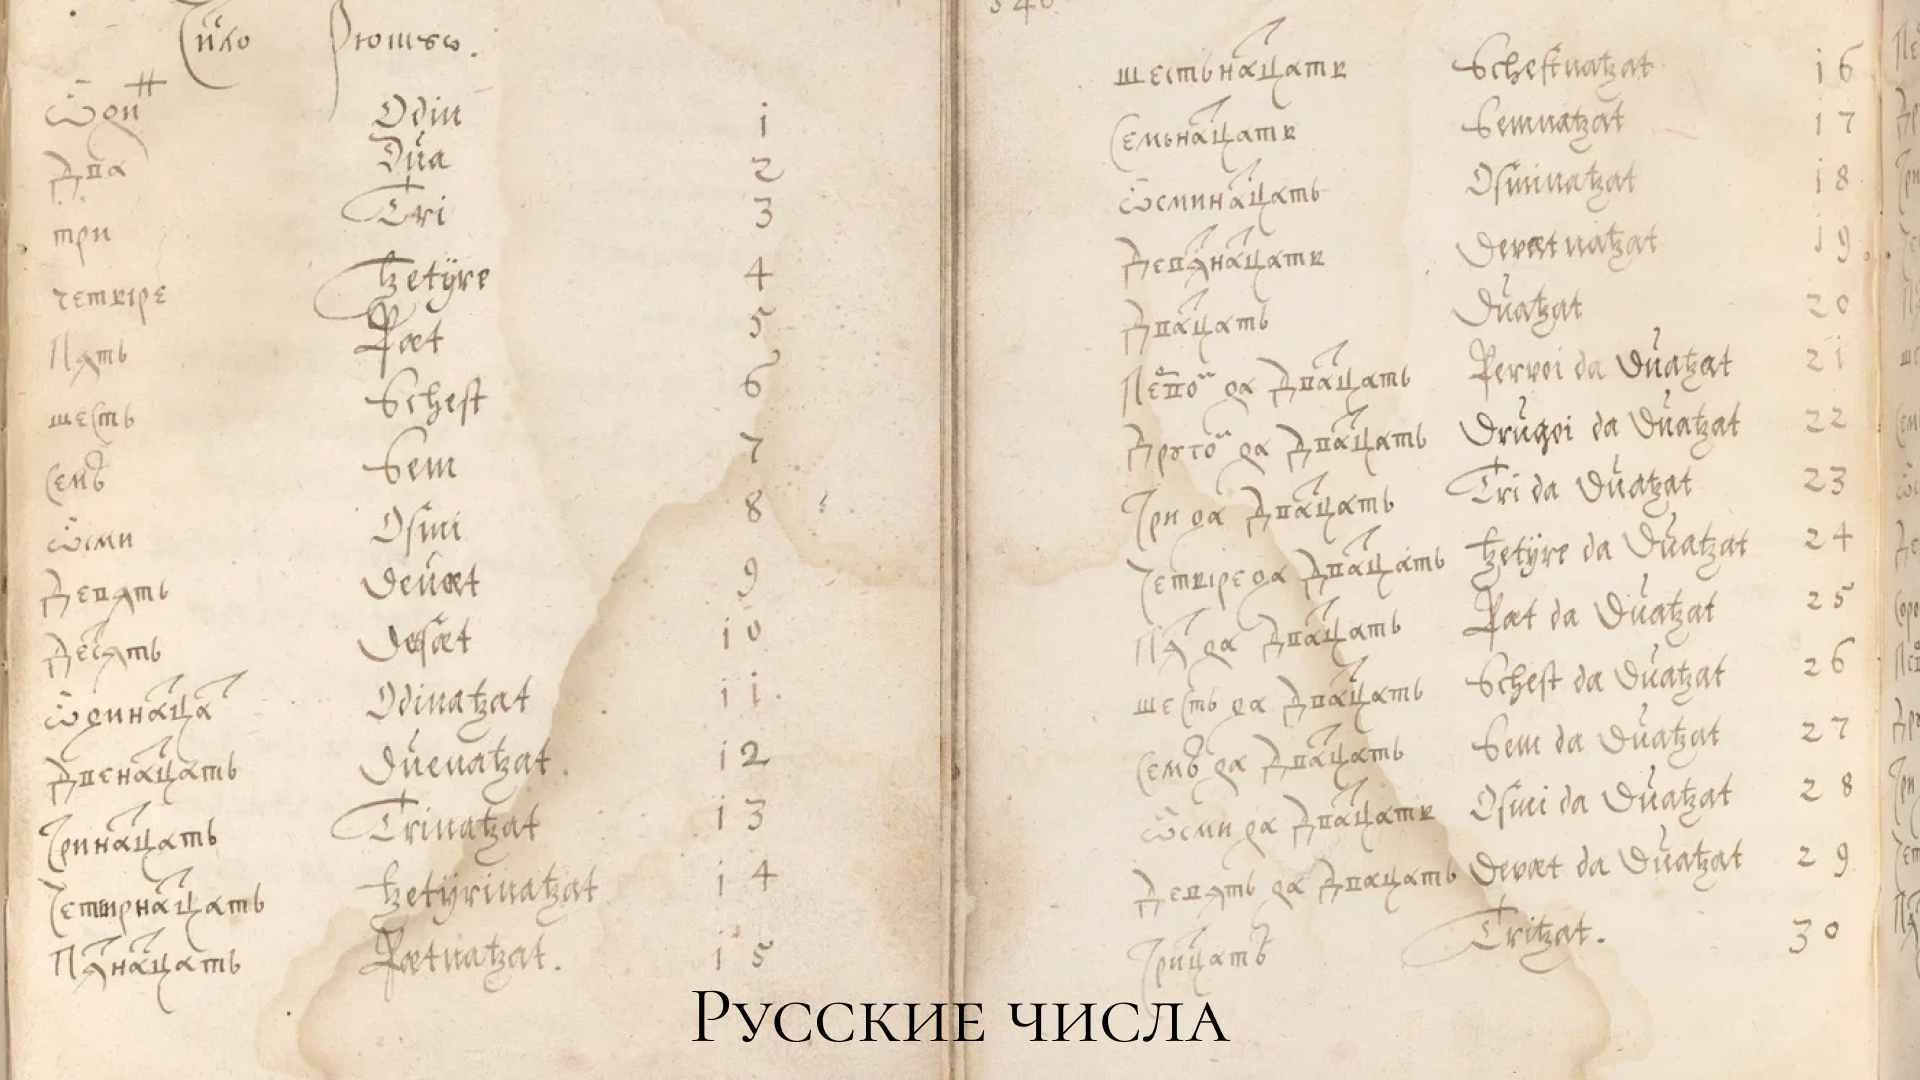 Один Odin 1
Два Dŭa 2
три Tri 3
четыре Tzetÿre 4
Пять Pæt 5
шесть Schest 6
Семь Sem 7
ѿсми Osmi 8
Девять Deŭæt 9
Десять Desæt 10
ѿдинацат Odinatzat 11.
Двенацать Dŭenatzat. 12
Тринацать Trinatzat 13
Четырнацать Tzetÿrinatzat 14
Пятнацать Pætnatzat. 15
шестьнацаты Schestnatzat 16
Семьнацаты Semnatzat 17
ѿсминацать Osminatzat 18
Девятнацаты Devætnatzat 19.
Двацать Dŭatzat 20
Первой да Двацать Pervoi da Dŭatzat 21
Другой да Двацать Drŭgoi da Dŭatzat 22
Три да Двацать Tri da Dŭatzat 23
Четыре да Двацать Tzetÿre da Dŭatzat 24
Пят да Двацать Pæt da Dŭatzat 25
шесть да Двацать Schest da Dŭatzat 26
Семь да Двацать Sem da Dŭatzat 27
ѿсми да Двацаты Osmi da Dŭatzat 28
Девять да Двацать Devæt da Dŭatzat 29
Трицать Tritzat. 30
Русские числа